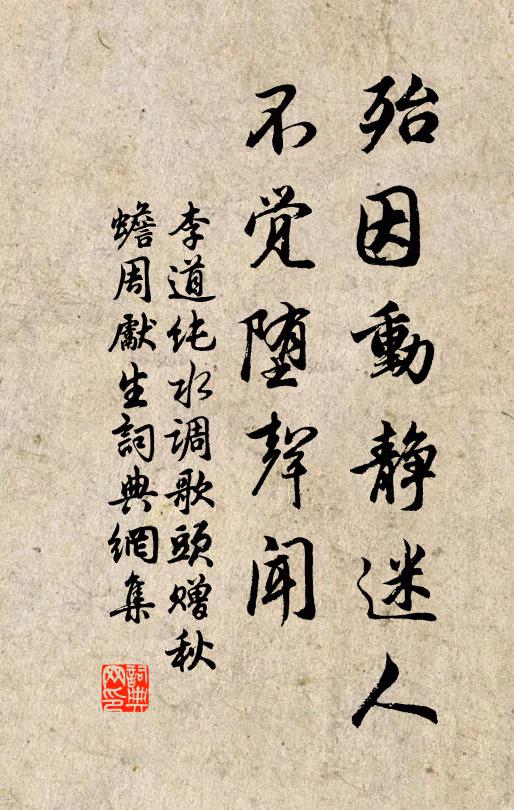 殆因動靜迷人
不覚堕聲聞
李道纯水调歌頭赠秋
蟾周獻生詞典網集
詞典
网印